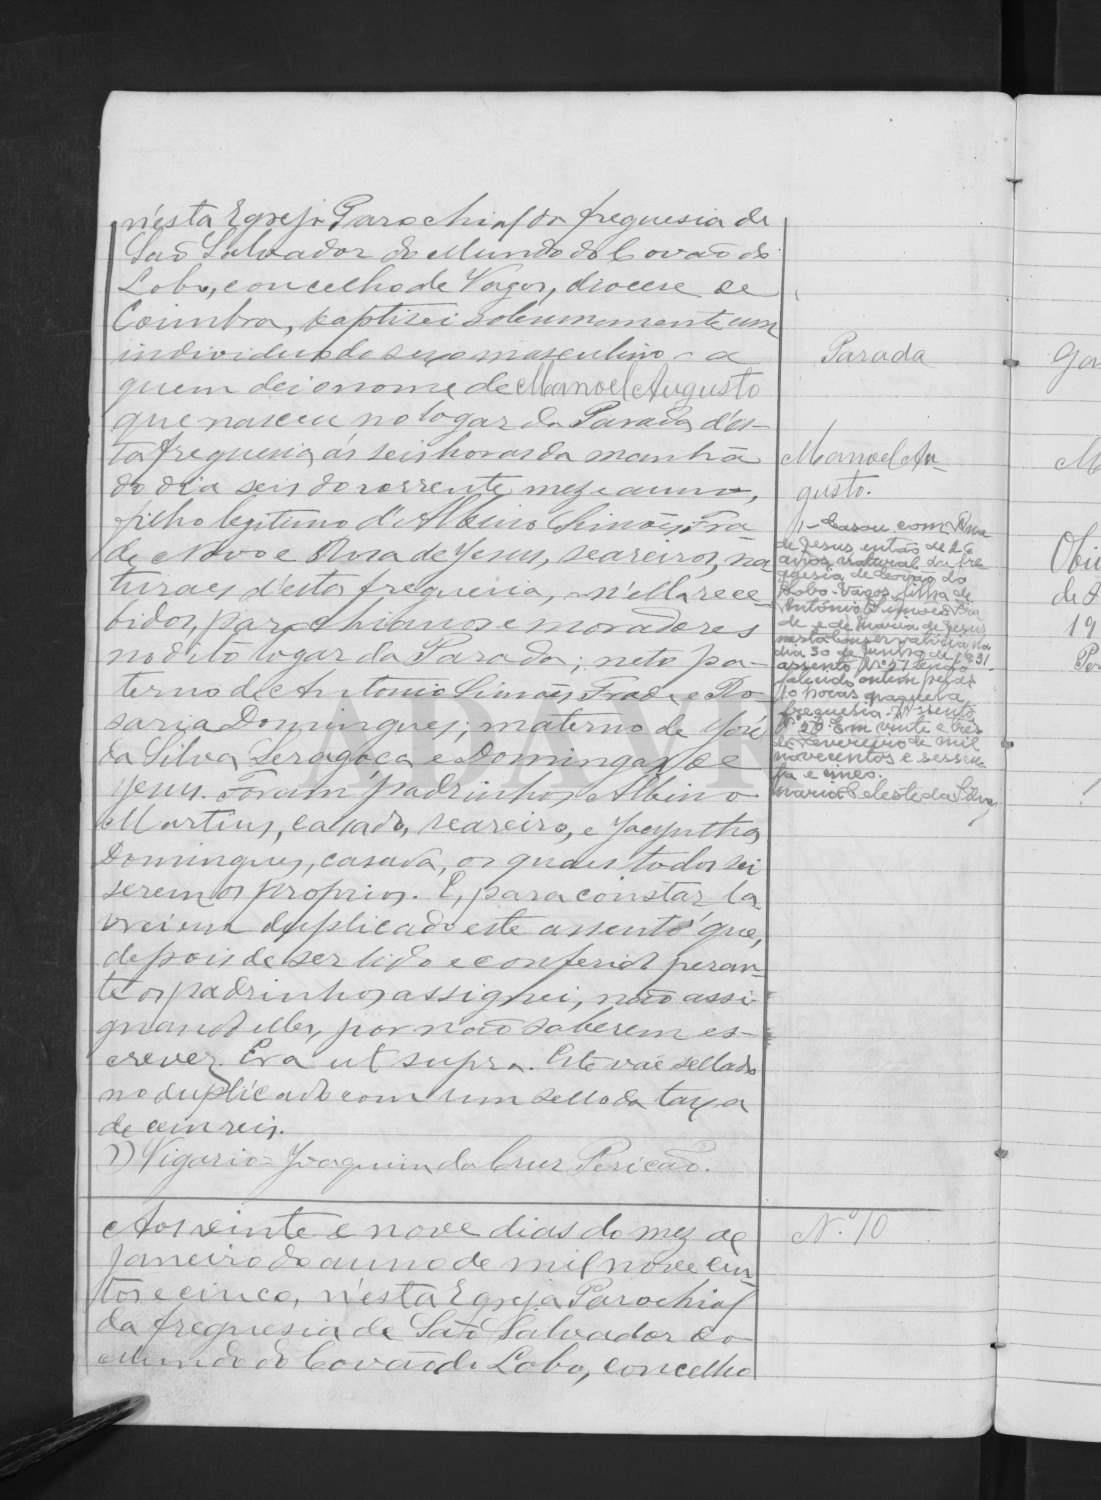 n'esta Egreja Parochial da freguesia de
São Salvador do Mundo do Covão do
Lobo, concelho de Vagos, diocese de
Coimbra, baptisei solemnemente um
individuo do sexo masculino a
quem dei o nome de Manoel Augusto
que nasceu no logar da Parada d'es-
ta freguesia ás seis horas da manhã
do dia seis do corrente mez e anno,
filho legitimo d'Albino Simões Fra-
de Novo e Rosa de Jesus, seareiros, na
turaes d'esta freguesia, n'ella rece-
bidos, parochianos e moradores
no dito logar da Parada; neto pa-
terno de Antonio Simões Frade e Ro
saria Domingues; materno de José
da Silva Seragoça e Domingas de
Jesus. Foram padrinhos Albino
Martins, casado, seareiro, e Jacyntha
Domingues, casada, os quaes todos sei
serem os proprios. E, para constar la-
vrei em duplicado este assento que,
depois de ser lido e conferido peran-
te os padrinhos assignei, não assi-
gnando elles, por não saberem es-
crever. Era ut supra. Este vae sellado
no duplicado com um sello da taxa
de cem reis.
O Vigario = Joaquim da Cruz Pericão.
Parada
Manoel Au-
gusto.
1, - Casou com Rosa
de Jesus então de 26
anos natural da fre
guesia de Covão do
Lobo - Vagos filha de
António Simões Fra
de e de Maria de Jesus
nesta Conservatória no
dia 30 de Junho de 1931
assento Nº 57 tendo
falecido ontem pelas
10 horas naquela
freguesia. Assento
Nº 26. Em vinte e três
de Fevereiro de mil
novecentos e sessen-
ta e cinco.
Maria Celeste da Silva
Aos vinte e nove dias do mez de
Janeiro do anno de mil nove cen-
tos e cinco, n'esta Egreja Parochial
da freguesia de São Salvador do
Mundo do Covão do Lobo, concelho
N.º 10
Obi
de
19